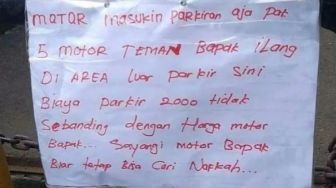 MOTOR masukin parkiran aja pak
5 MOTOR TEMAN Bapak iLang
Di AREA Luar parkir Sini
Biaya parkir 2000 tidak
Sebanding dengan Harga motor
Bapak... Sayangi motor Bapak
Biar tetap Bisa Cari Nafkah...